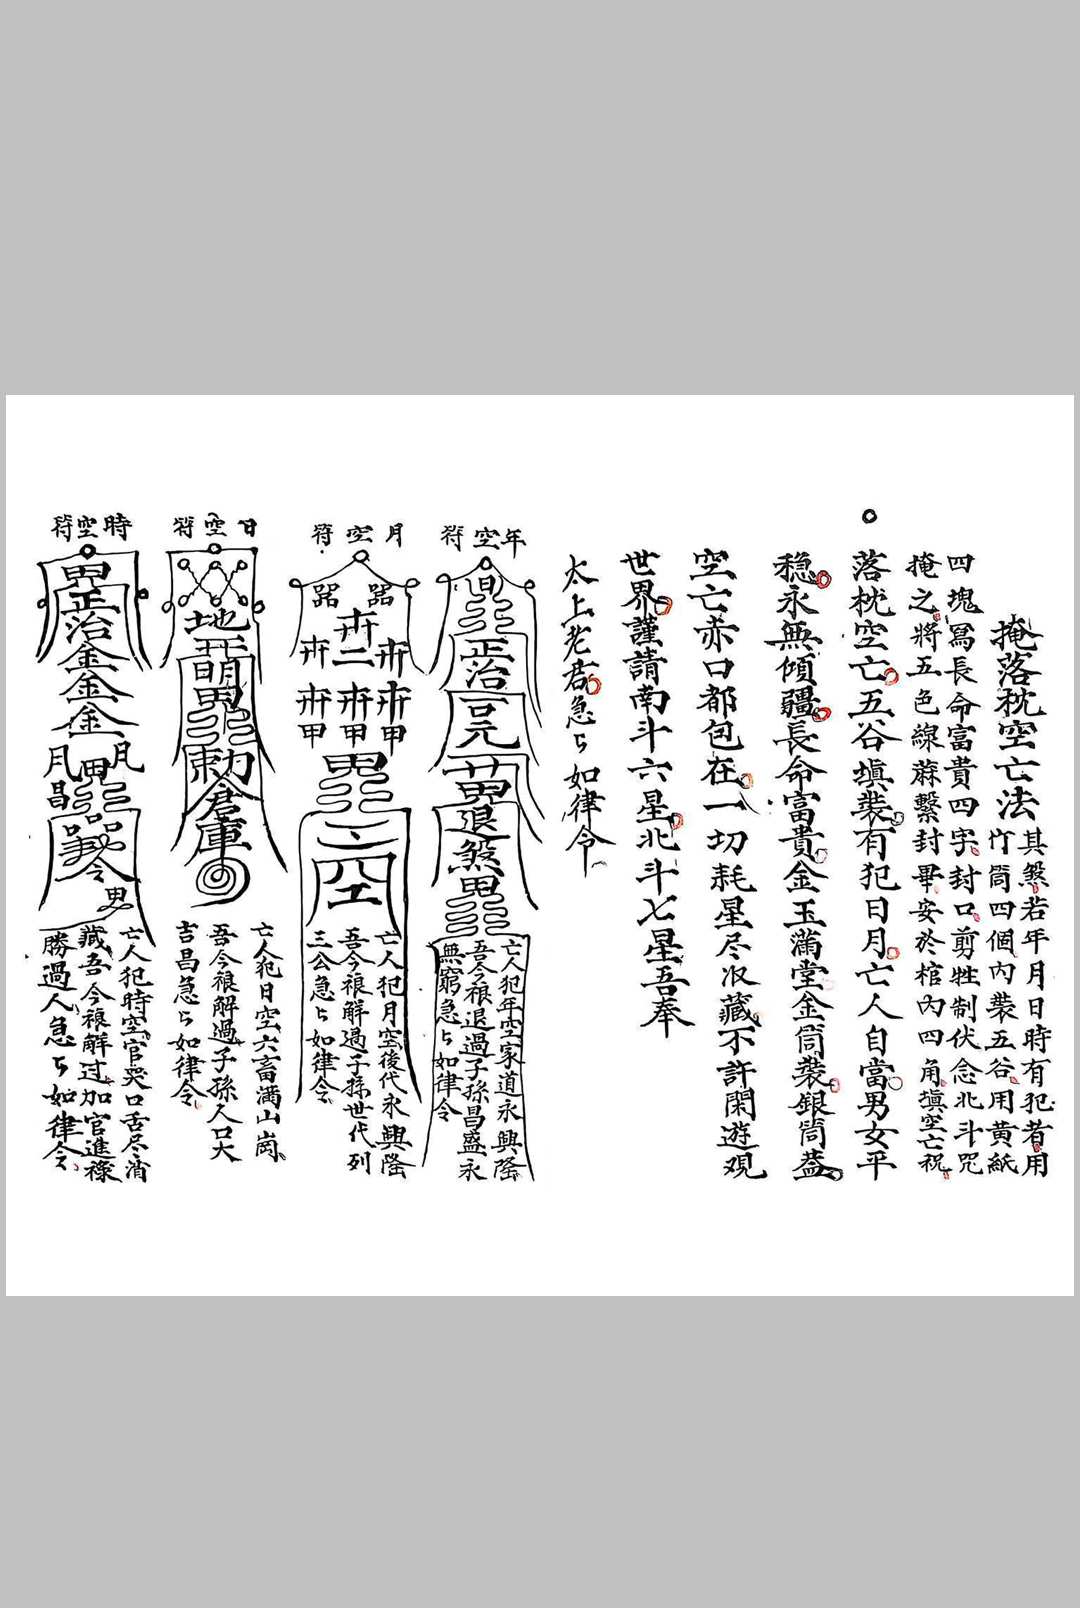 掩落枕空亡法
其煞若年月日時有犯者用
竹筒四個内裝五谷用黄紙
四塊冩長命富貴四字封口剪牲制伏念北斗咒
掩之將五色線蔴繫封畢安於棺内四角填空亡祝
落枕空亡五谷填裝有犯日月亡人自當男女平
稳永無傾疆長命富貴金玉滿堂金筒裝銀筒葢
空亡赤口都包在一切耗星尽収藏不許閑遊观
世界謹請南斗六星北斗七星吾奉
太上老君急ㄣ如律令
年空符
正治
元
黄
退煞
亡人犯年空家道永興隆
吾今禳退過子孫昌盛永
無窮急ㄣ如律令
月空符
亡人犯月空後代永興隆
吾今禳解過子孫世代列
三公急ㄣ如律令
日空符
地
勅令
庫
亡人犯日空六畜满山崗
吾今禳解過子孫人口大
吉昌急ㄣ如律令
時空符
正治
金金金
月月
昌
令
亡人犯時空官灾口舌尽消
藏吾今禳解过加官進祿
勝過人急ㄣ如律令